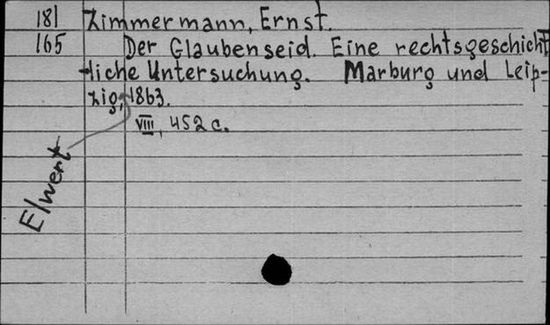 181 Zimmermann, Ernst.
165 Der Glaubenseid. Eine rechtsgeschicht
liche Untersuchung. Marburg und Leip-
zig, 1863.
VIII, 452 c.
Elwert